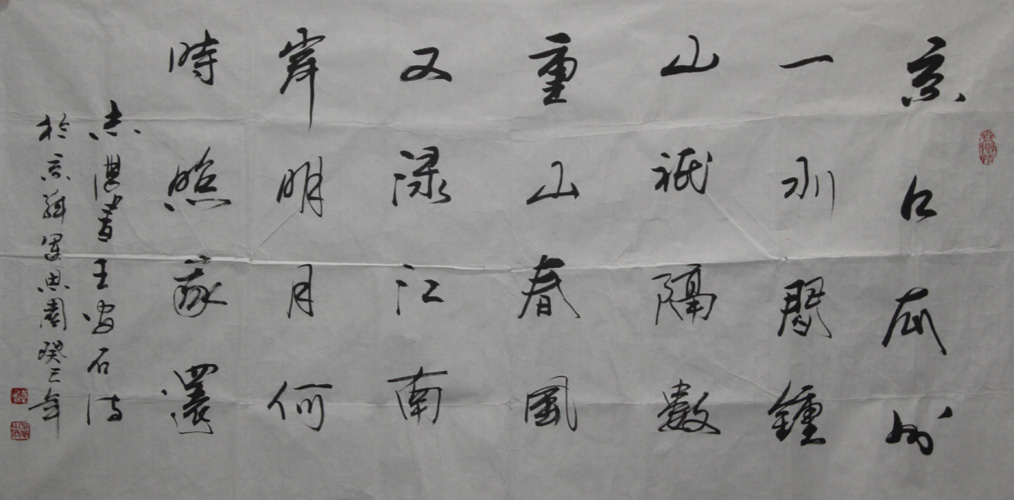 京口瓜州
一水間鍾
山祇隔數
重山春風
又綠江南
岸明月何
時照我還
書王安石诗
於京思園癸巳年